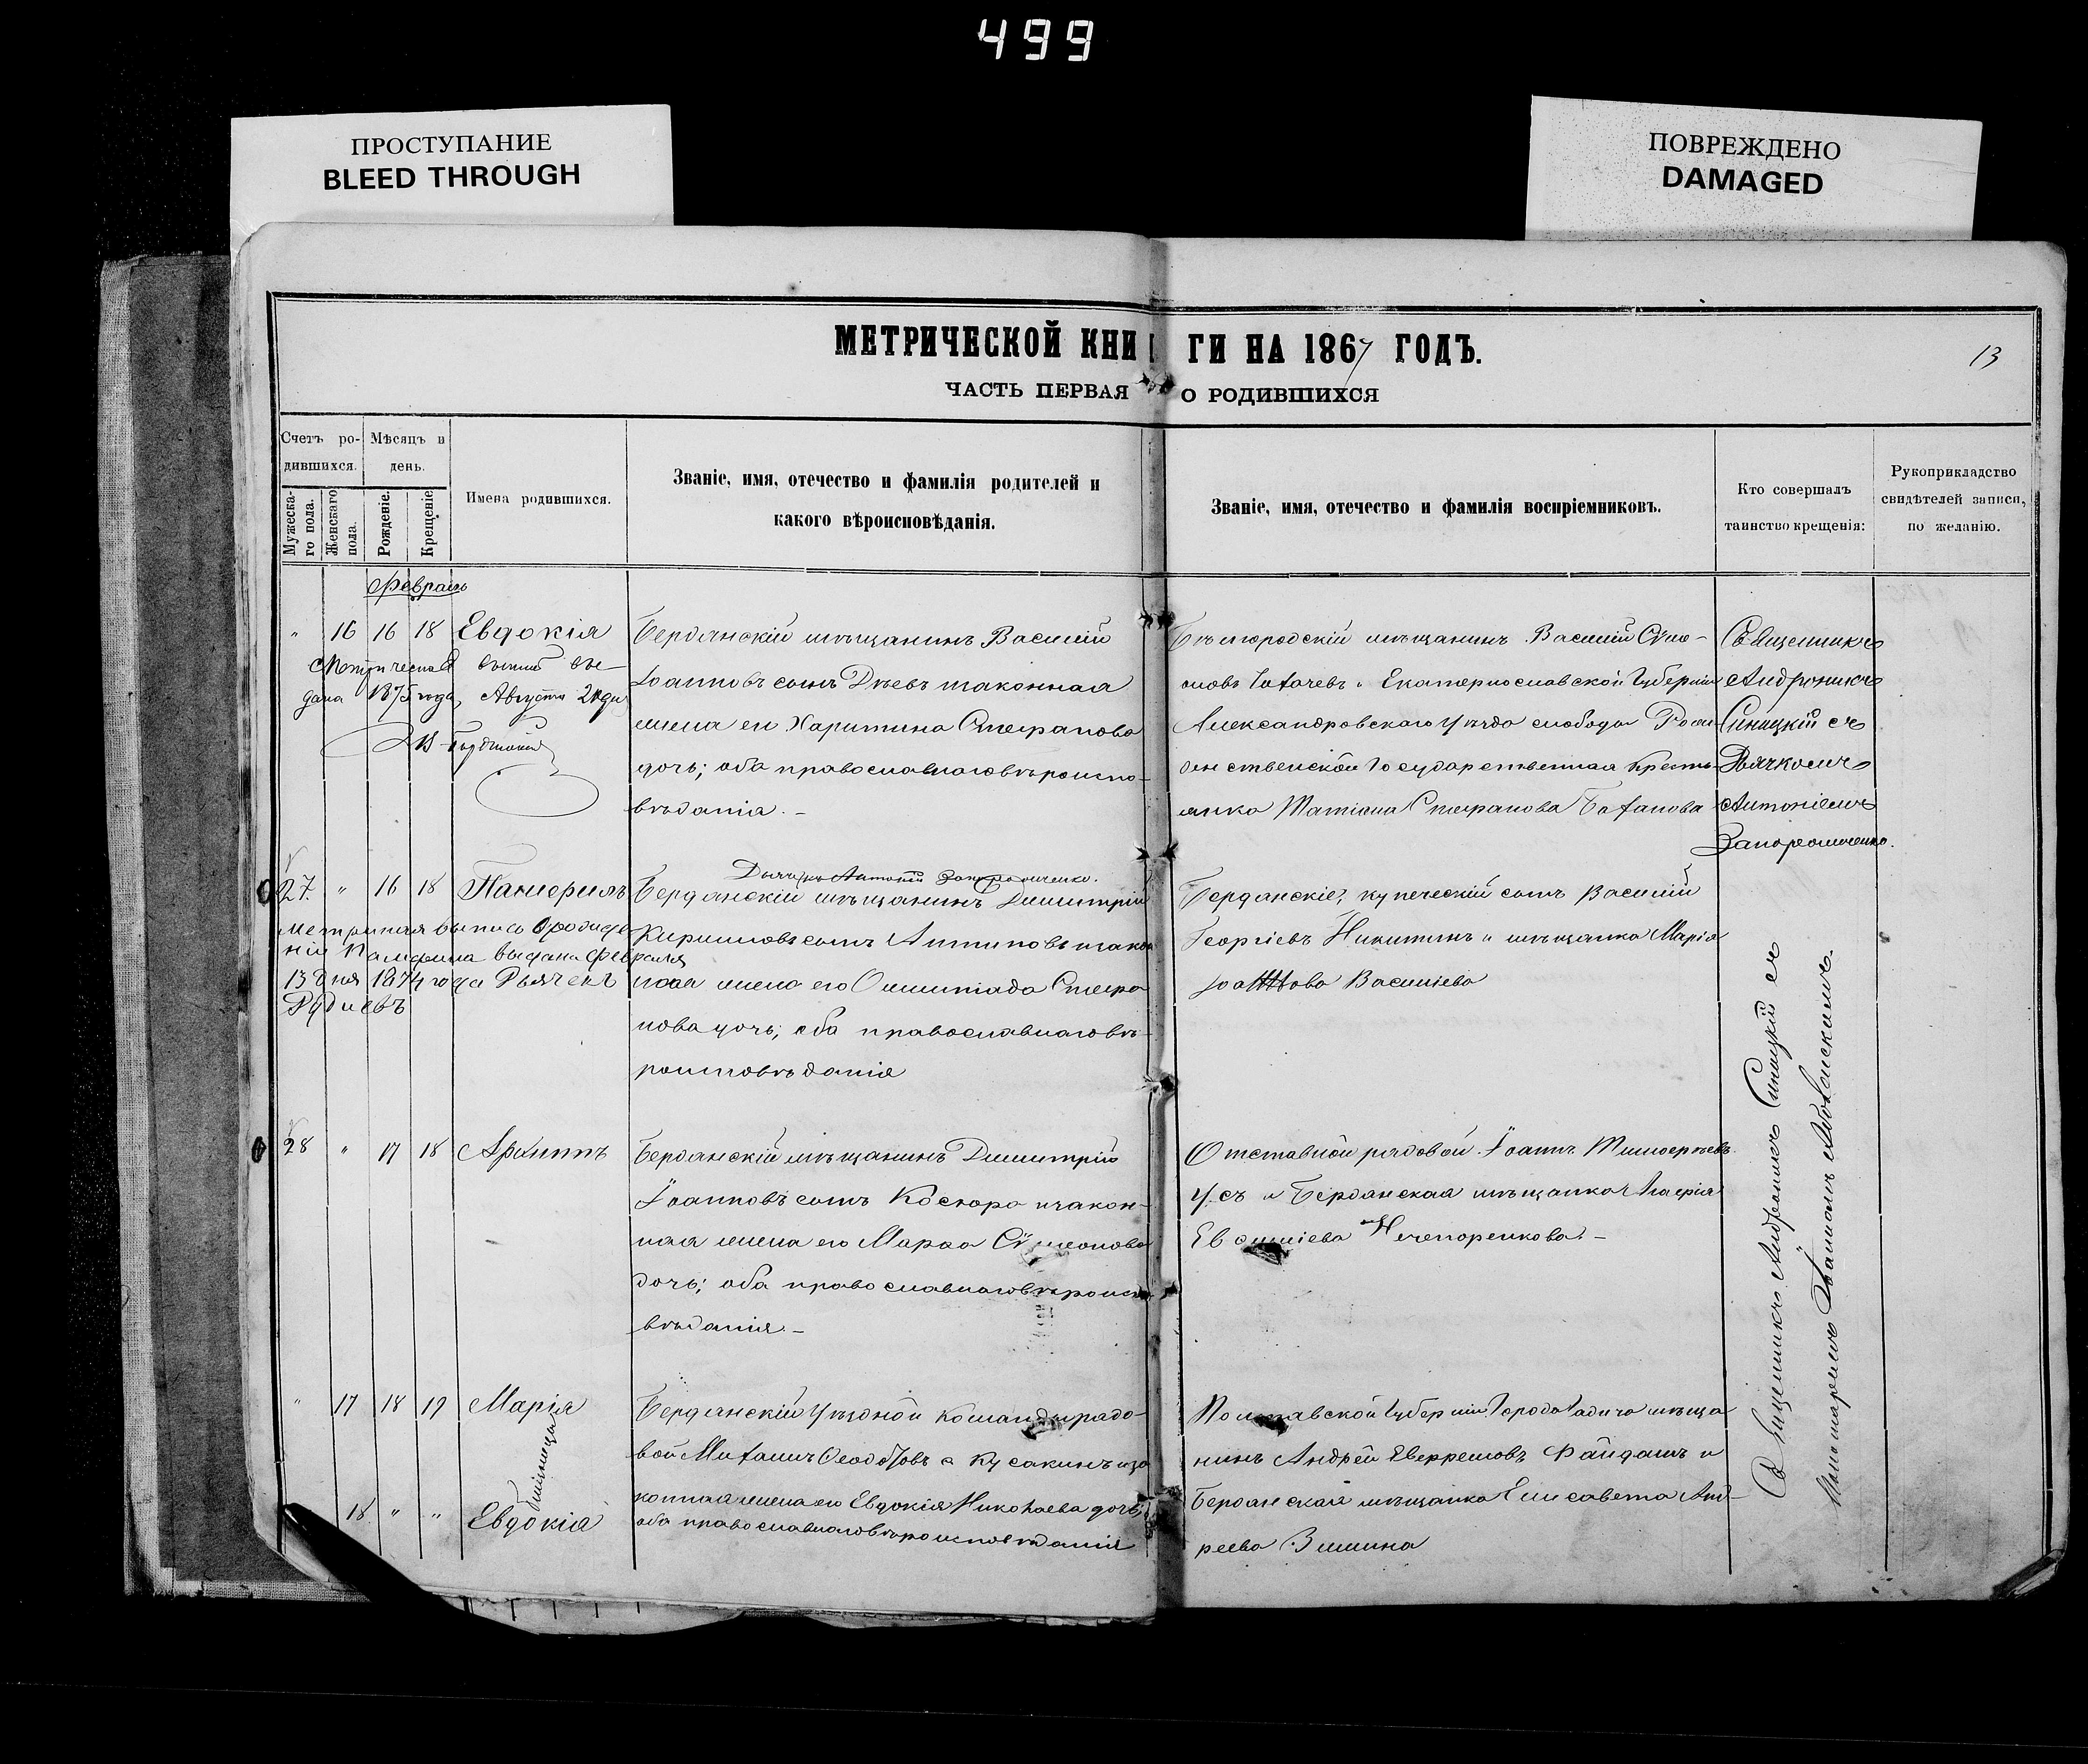 499
ПРОСТУПАНИЕ
BLEED THROUGH
ПОВРЕЖДЕНО
DAMAGED
МЕТРИЧЕСКОЙ КНИГИ НА 1867 ГОДЪ.
13
ЧАСТЬ ПЕРВАЯ О РОДИВШИХСЯ
Счетъ ро-
дившихся.
Мужеска-
го пола.
Женскаго
пола.
Мѣсяцъ и
день.
Рожденіе.
Крещеніе
Имена родившихся.
Званіе, имя, отечество и фамилія родителей и
какого вѣроисповѣданія.
Званіе, имя, отечество и фамилія воспріемниковъ.
Кто совершалъ
таинство крещенія:
Рукоприкладство
свидѣтелей записи,
по желанію.
Февраль
" 16 16 18 Евдокія
Метрическая вы-
дана 1875 года, Августа
Бердянскій мѣщанинъ Василій
Іоанновъ сынъ Дѣевъ и законная
жена его Харитина Стефанова
дочь; оба православнаго вѣроиспо-
вѣданія. –
мѣщанинъ Василій Сѵме-
оновъ и Екатеринославской Губерніи
Александровскаго Уѣзда слободы Рож-
дественской Государственная Кресть-
янка Татіана Стефанова
Священникъ
Андроникъ
Синицкій съ
Дьячкомъ
Антоніемъ
Запорожченко.
27. " 16 18 Памфилъ
Метричная выпись о рожде-
ніи Памфила выдана Февраля
13 дня 1874 года Дьячекъ
Рудневъ
Дьячекъ Антоній Запорожченко.
Бердянскій мѣщанинъ Димитрій
Кириловъ сынъ Антиповъ и закон
ная жена его Олимпіада Стефа
нова дочь; оба православнаго вѣ-
роисповѣданія
Бердянскіе, купеческій сынъ Василій
Георгіевъ Никитинъ и мѣщанка Марія
Іоаннова Василіева
28 " 17 18 Архиппъ
Бердянскій мѣщанинъ Димитрій
Іоанновъ сынъ Косюра и закон-
ная жена его Марѳа Сѵмеонова
дочь; оба православнаго вѣроиспо-
вѣданія. –
Отставной рядовой Іоаннъ Тимоѳеевъ
Усъ и Бердянская мѣщанка
Нечепоренкова. –
" 17 18 19 Марія
близнецы
18 " " Евдокія
Бердянскій Уѣздной команды рядо-
вой Михаилъ Ѳеодотовъ Кусакинъ и за
конная жена его Евдокія Николаева дочь;
оба православнаго вѣроисповѣданія
Полтавской Губерніи Города Гадича мѣща
нинъ Андрей и
Бердянская мѣщанка Елисавета Анд-
реева Зимина
Священникъ Андроникъ Синицкій съ
Пономаремъ